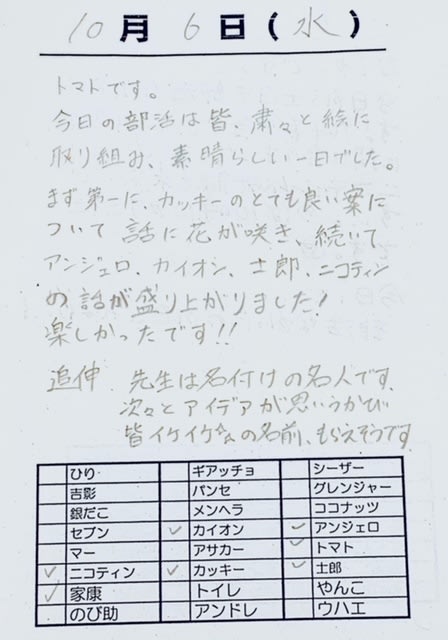 10月6日(水)
トマトです。
今日の部活は皆、粛々と絵に
取り組み、素晴らしい一日でした。
まず第一に、カッキーのとても良い案に
ついて 話に花が咲き、続いて
アンジェロ、カイオン、士郎、ニコティン
の話が盛り上がりました!
楽しかったです!!
追伸 先生は名付けの名人です。
次々とアイデアが思いうかび
皆イケイケな名前、もらえそうです
ひり ギアッチョ シーザー
吉影 パンセ グレンジャー
銀だこ メンヘラ ココナッツ
セブン ✓ カイオン ✓ アンジェロ
マー アサカー ✓ トマト
✓ ニコティン ✓ カッキー ✓ 士郎
✓ 家康 トイレ やんこ
のび助 アンドレ ウハエ